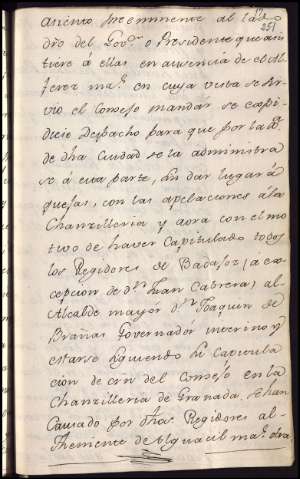 251
asiento preeminente al lado
dro del Govor. o Presidente que asis
tiere á ellas en ausencia de el Al
ferez mar. en cuya vista se sir
vió el Consejo mandar se expi
diese Despacho para que por la
de dha Ciudad se la administra
se á esta parte, sin dar lugar á
quejas, con las apelaciones á la
Chanzilleria y aora con el mo
tivo de haver Capitulado todos
los Regidores de Badajoz (a ex
cepcion de Dn. Juan Cabrera) al
Alcalde mayor Dn. Joaquin de
Brañas Governador interino, y
estarse siguiendo su Capitula
cion de orn del Consejo en la
Chanzilleria de Granada, se han
Causado por dhos. Regidores al
Theniente de Alguacil mar. otra